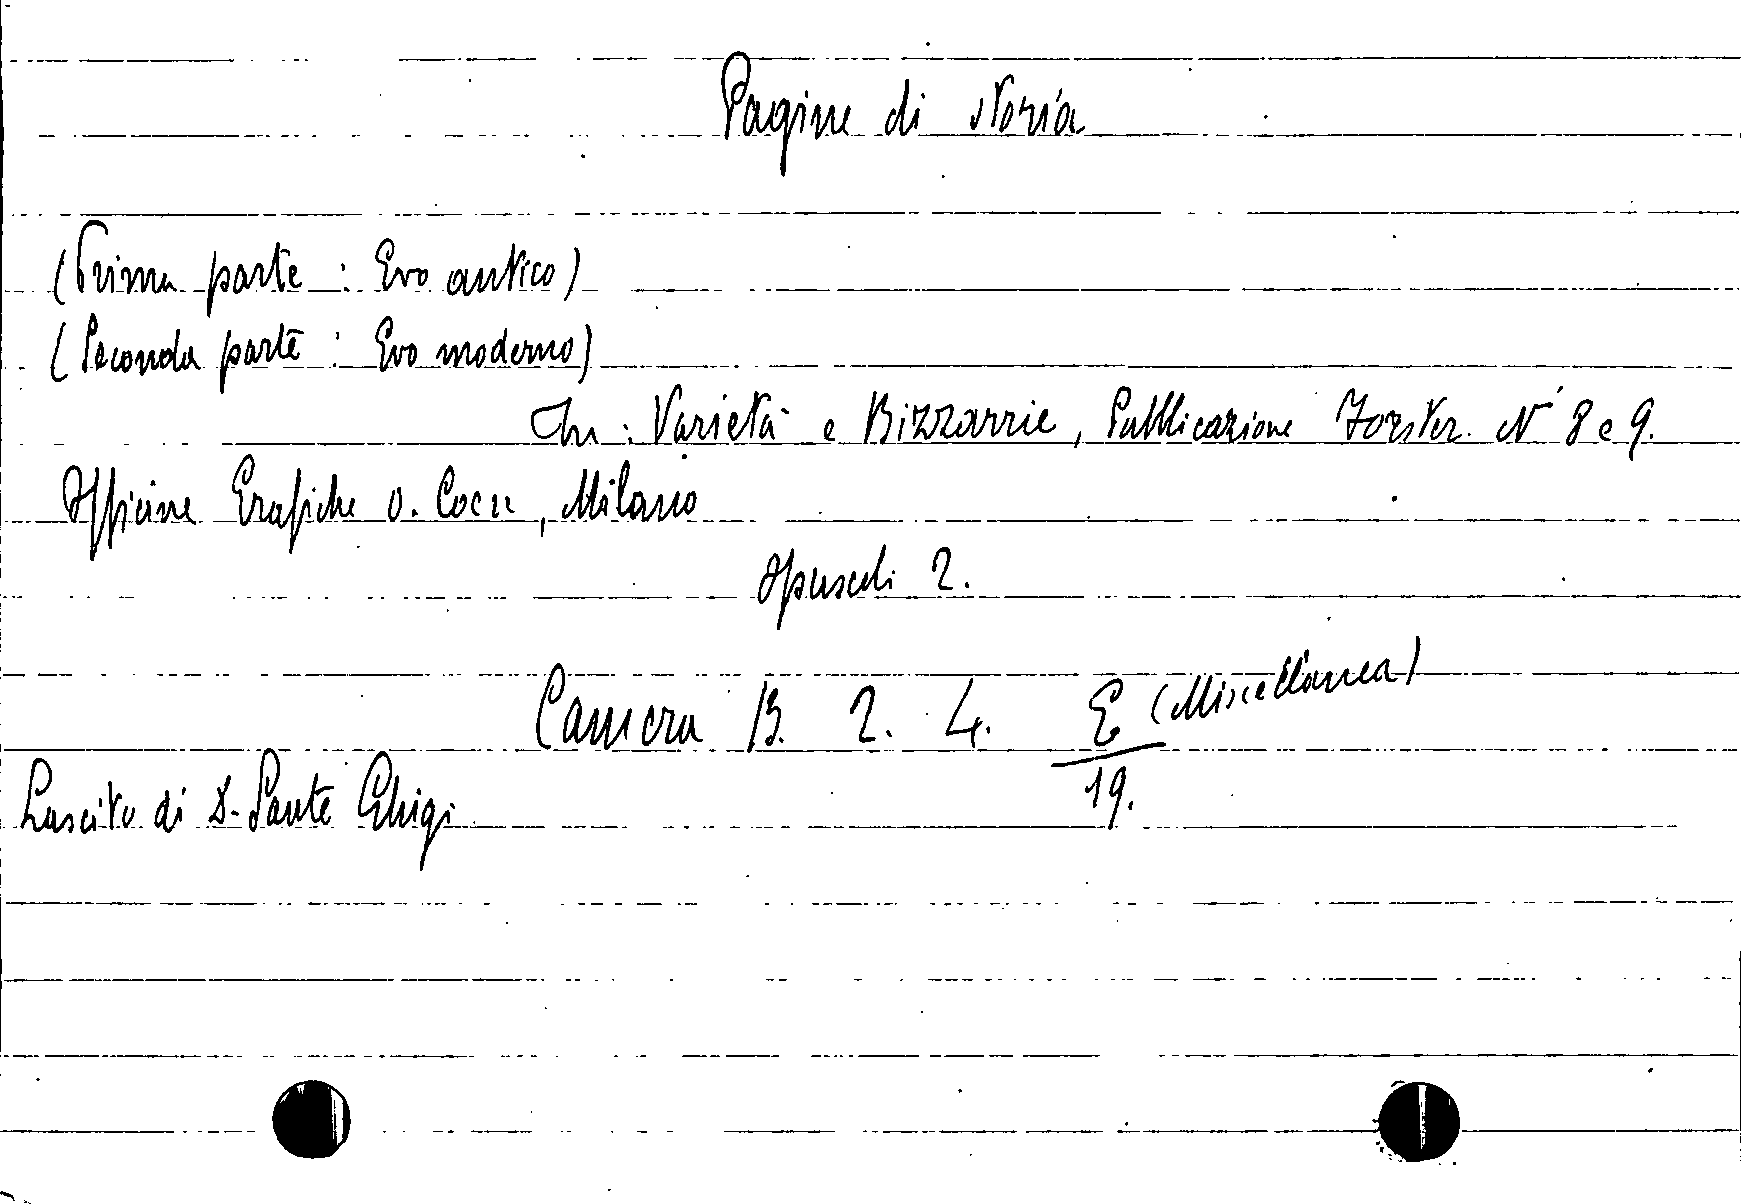 Pagine di storia
(Prima parte : Evo antico)
(Seconda parte : Evo moderno)
In : Varietà e Bizzarrie, Pubblicazione Forster. N° 8 e 9.
Officine Grafiche O. , Milano
Opuscoli 2.
Camera B. 2. 4. E (Miscellanea)
19.
Lascito di D. Sante Ghigi